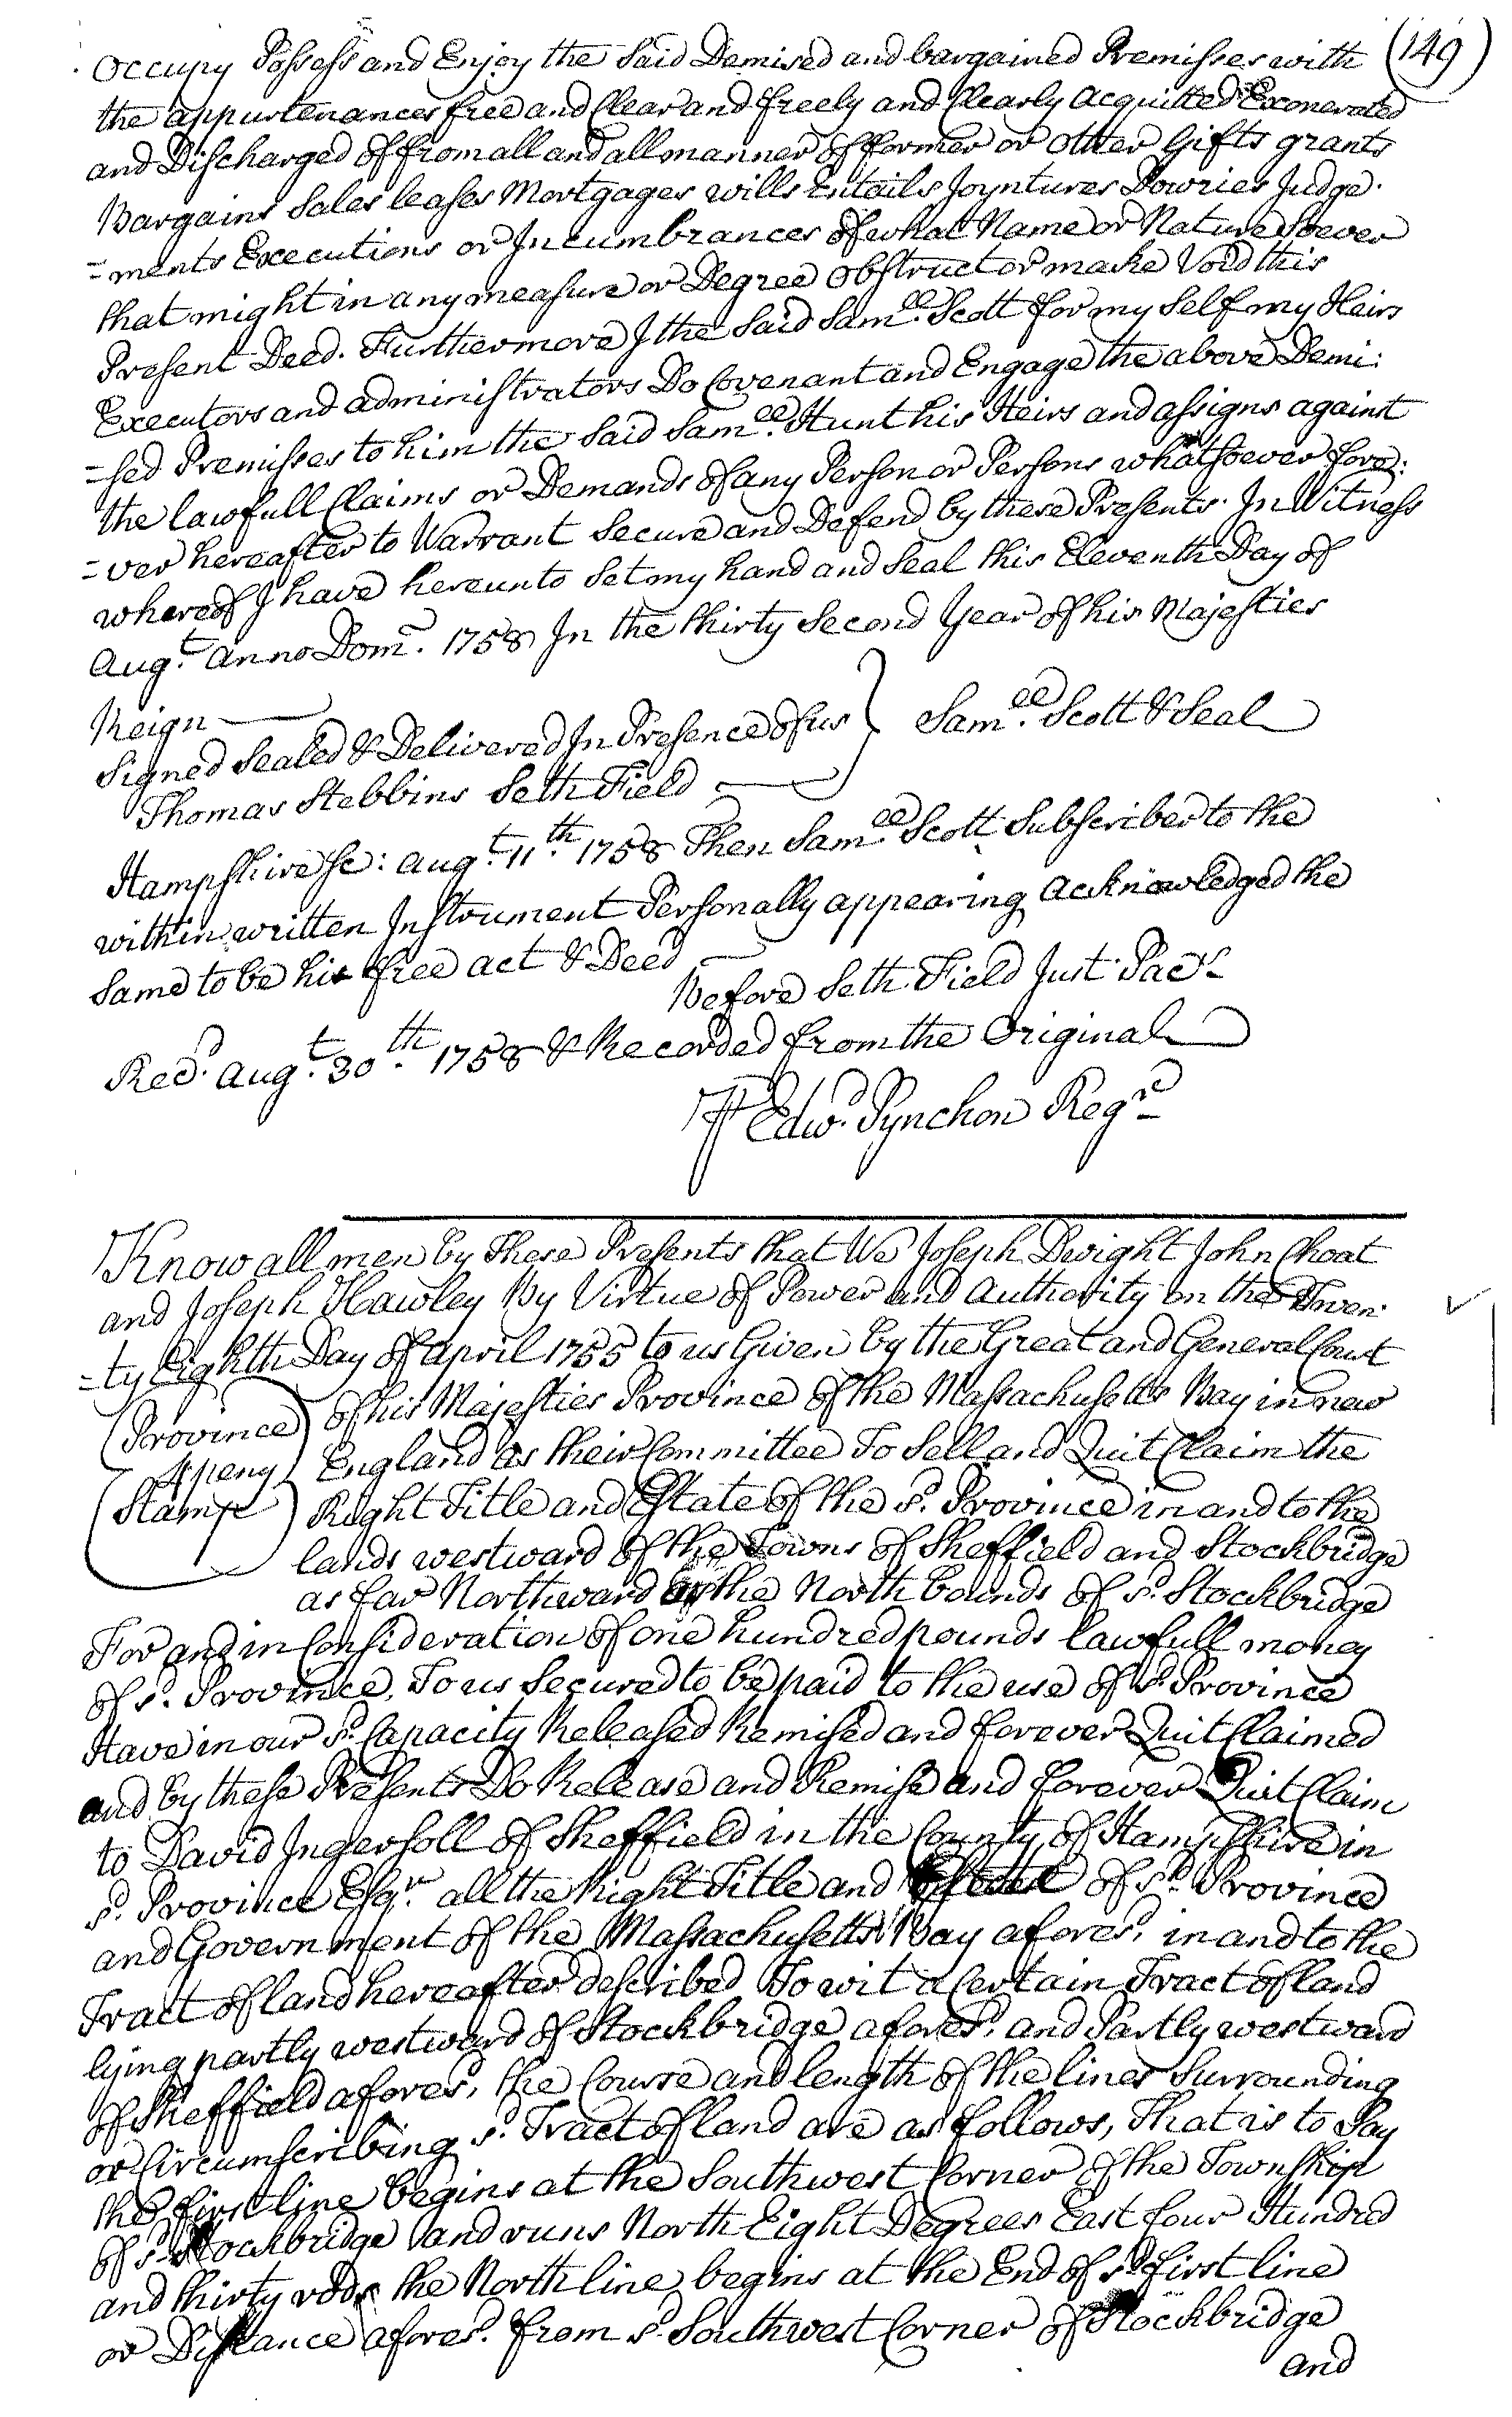 (149)
Occupy Possess and Enjoy the Said Demised and bargained Premisses with
the appurtenances free and Clear and freely and Clearly Acquitted Exonerated
and Discharged of from all and all manner of former or other Gifts grants
Bargains Sales leases Mortgages wills Entails Joyntures Dowries Judge-
=ments Executions or Incumbrances of what Name or Nature Soever
that might in any measure or Degree obstruct or make Void this
Present Deed. Furthermore I the Said Sam.ll Scott for my Self my Heirs
Executors and administrators Do Covenant and Engage the above Demi:
=sed Premisses to him the Said Sam.ll Hunt his Heirs and assigns against
the lawfull Claims or Demands of any Person or Persons whatsoever fore:
=ver hereafter to Warrant Secure and Defend by these Presents. In Witness
whereof I have hereunto Set my hand and Seal this Eleventh Day of
Aug.t Anno Dom. 1758 In the thirty Second Year of his Majesties
Reign
Signed Sealed & Delivered In Presence of us } Sam.ll Scott & Seal
Thomas Stebbins Seth Field
Hampshire Sc: Aug.t 11.th 1758 Then Sam.ll Scott Subscriber to the
within written Instrument Personally appearing Acknowledged the
Same to be his free act & Deed
Before Seth Field Just. Pac.s
Rec.d Aug.t 30.th 1758 & Recorded from the Original
P Edw.d Pynchon Reg.r
Know all men by These Presents that We Joseph Dwight John Choat
and Joseph Hawley By Virtue of Power and Authority on the Twen-
=ty Eighth Day of April 1755 to us Given by the Great and General Court
(Province) of his Majesties Province of the Massachusetts Bay in new
4 peny England as their Committee To Sell and Quit Claim the
(Stampe) Right Title and Estate of the s.d Province in and to the
lands westward of the Towns of Sheffield and Stockbridge
as far Northward as the North bounds of s.d Stockbridge
For and in Consideration of one hundred pounds lawfull money
of s.d Province, To us Secured to be paid to the use of s.d Province
Have in our s.d Capacity Released Remised and forever Quit Claimed
and by these Presents Do Release and Remise and forever Quit Claim
to David Ingersoll of Sheffield in the County of Hampshire in
s.d Province Esq.r all the Right Title and Estate of s.d Province
and Government of the Massachusetts Bay afores.d in and to the
Tract of land hereafter described To wit a Certain Tract of land
lying partly westward of Stockbridge afores.d and Partly westward
of Sheffield afores.d, the Course and length of the lines Surrounding
or Circumscribing s.d Tract of land are as follows, That is to Say
the first line begins at the Southwest Corner of the Township
of s.d Stockbridge and runs North Eight Degrees East four Hundred
and thirty rods the North line begins at the End of s.d first line
or Distance afores.d from s.d Southwest Corner of Stockbridge
and